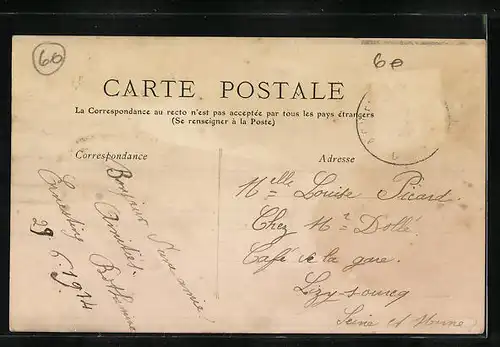 60
60
CARTE POSTALE
La Correspondance au recto n'est pas acceptée par tous les pays étrangers
(Se renseigner à la Poste)
Correspondance
Bonjour d'une amie!
Amitiés
Ernestine
29.6.1914
Adresse
Melle Louise Picard
Chez Mr Dollé
Café de la gare
Lizy-sourcq
Seine et Marne